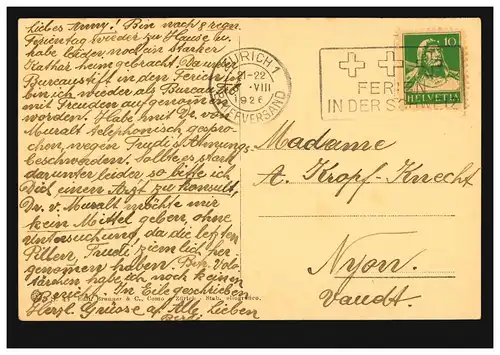 Liebes Anny! Bin nach 8 regn.
Ferientag wieder zu Hause u.
habe leider noch ein starker
Kathar heimgebracht. Da unser
Bureaustift in den Ferien ist
bin ich wieder als Bureau
mit Freuden aufgenommen
worden. Habe mit Dr. von
Muralt telephonisch gespro-
chen, wegen Trudi's Atmungs-
beschwerden. Sollte es stark
darunter leiden, so bitte ich
Dich einen Arzt zu konsult,
Dr. v. Muralt möchte mir
kein Mittel geben, ohne
Untersuchung, da die letzten
Pillen, Trudi ziemlich her-
genommen haben. Ben. Volo-
habe ich noch keinen
gereicht. In Eile geschrieben
Herzl. Grüsse a/ Alle Lieben
ZÜRICH 1
21-22
VIII
1926
BRIEFVERSAND
FERIEN
IN DER SCHWEIZ
10
HELVETIA
Madame
A. Kropf-Knecht
Nyon.
Vaudt.
Brunner & C., Como - Zürich - Stab. eliografico.